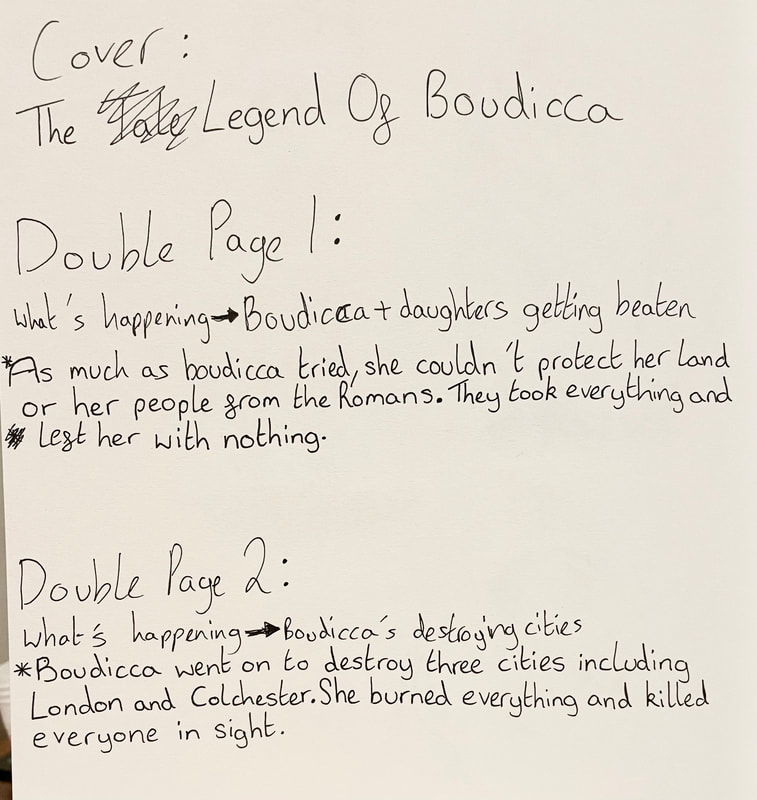 Cover:
The Legend Of Boudicca
Double Page 1:
What's happening→Boudicca + daughters getting beaten
*As much as boudicca tried, she couldn't protect her land
or her people from the Romans. They took everything and
left her with nothing.
Double Page 2:
What's happening→Boudicca's destroying cities
*Boudicca went on to destroy three cities including
London and Colchester. She burned everything and killed
everyone in sight.